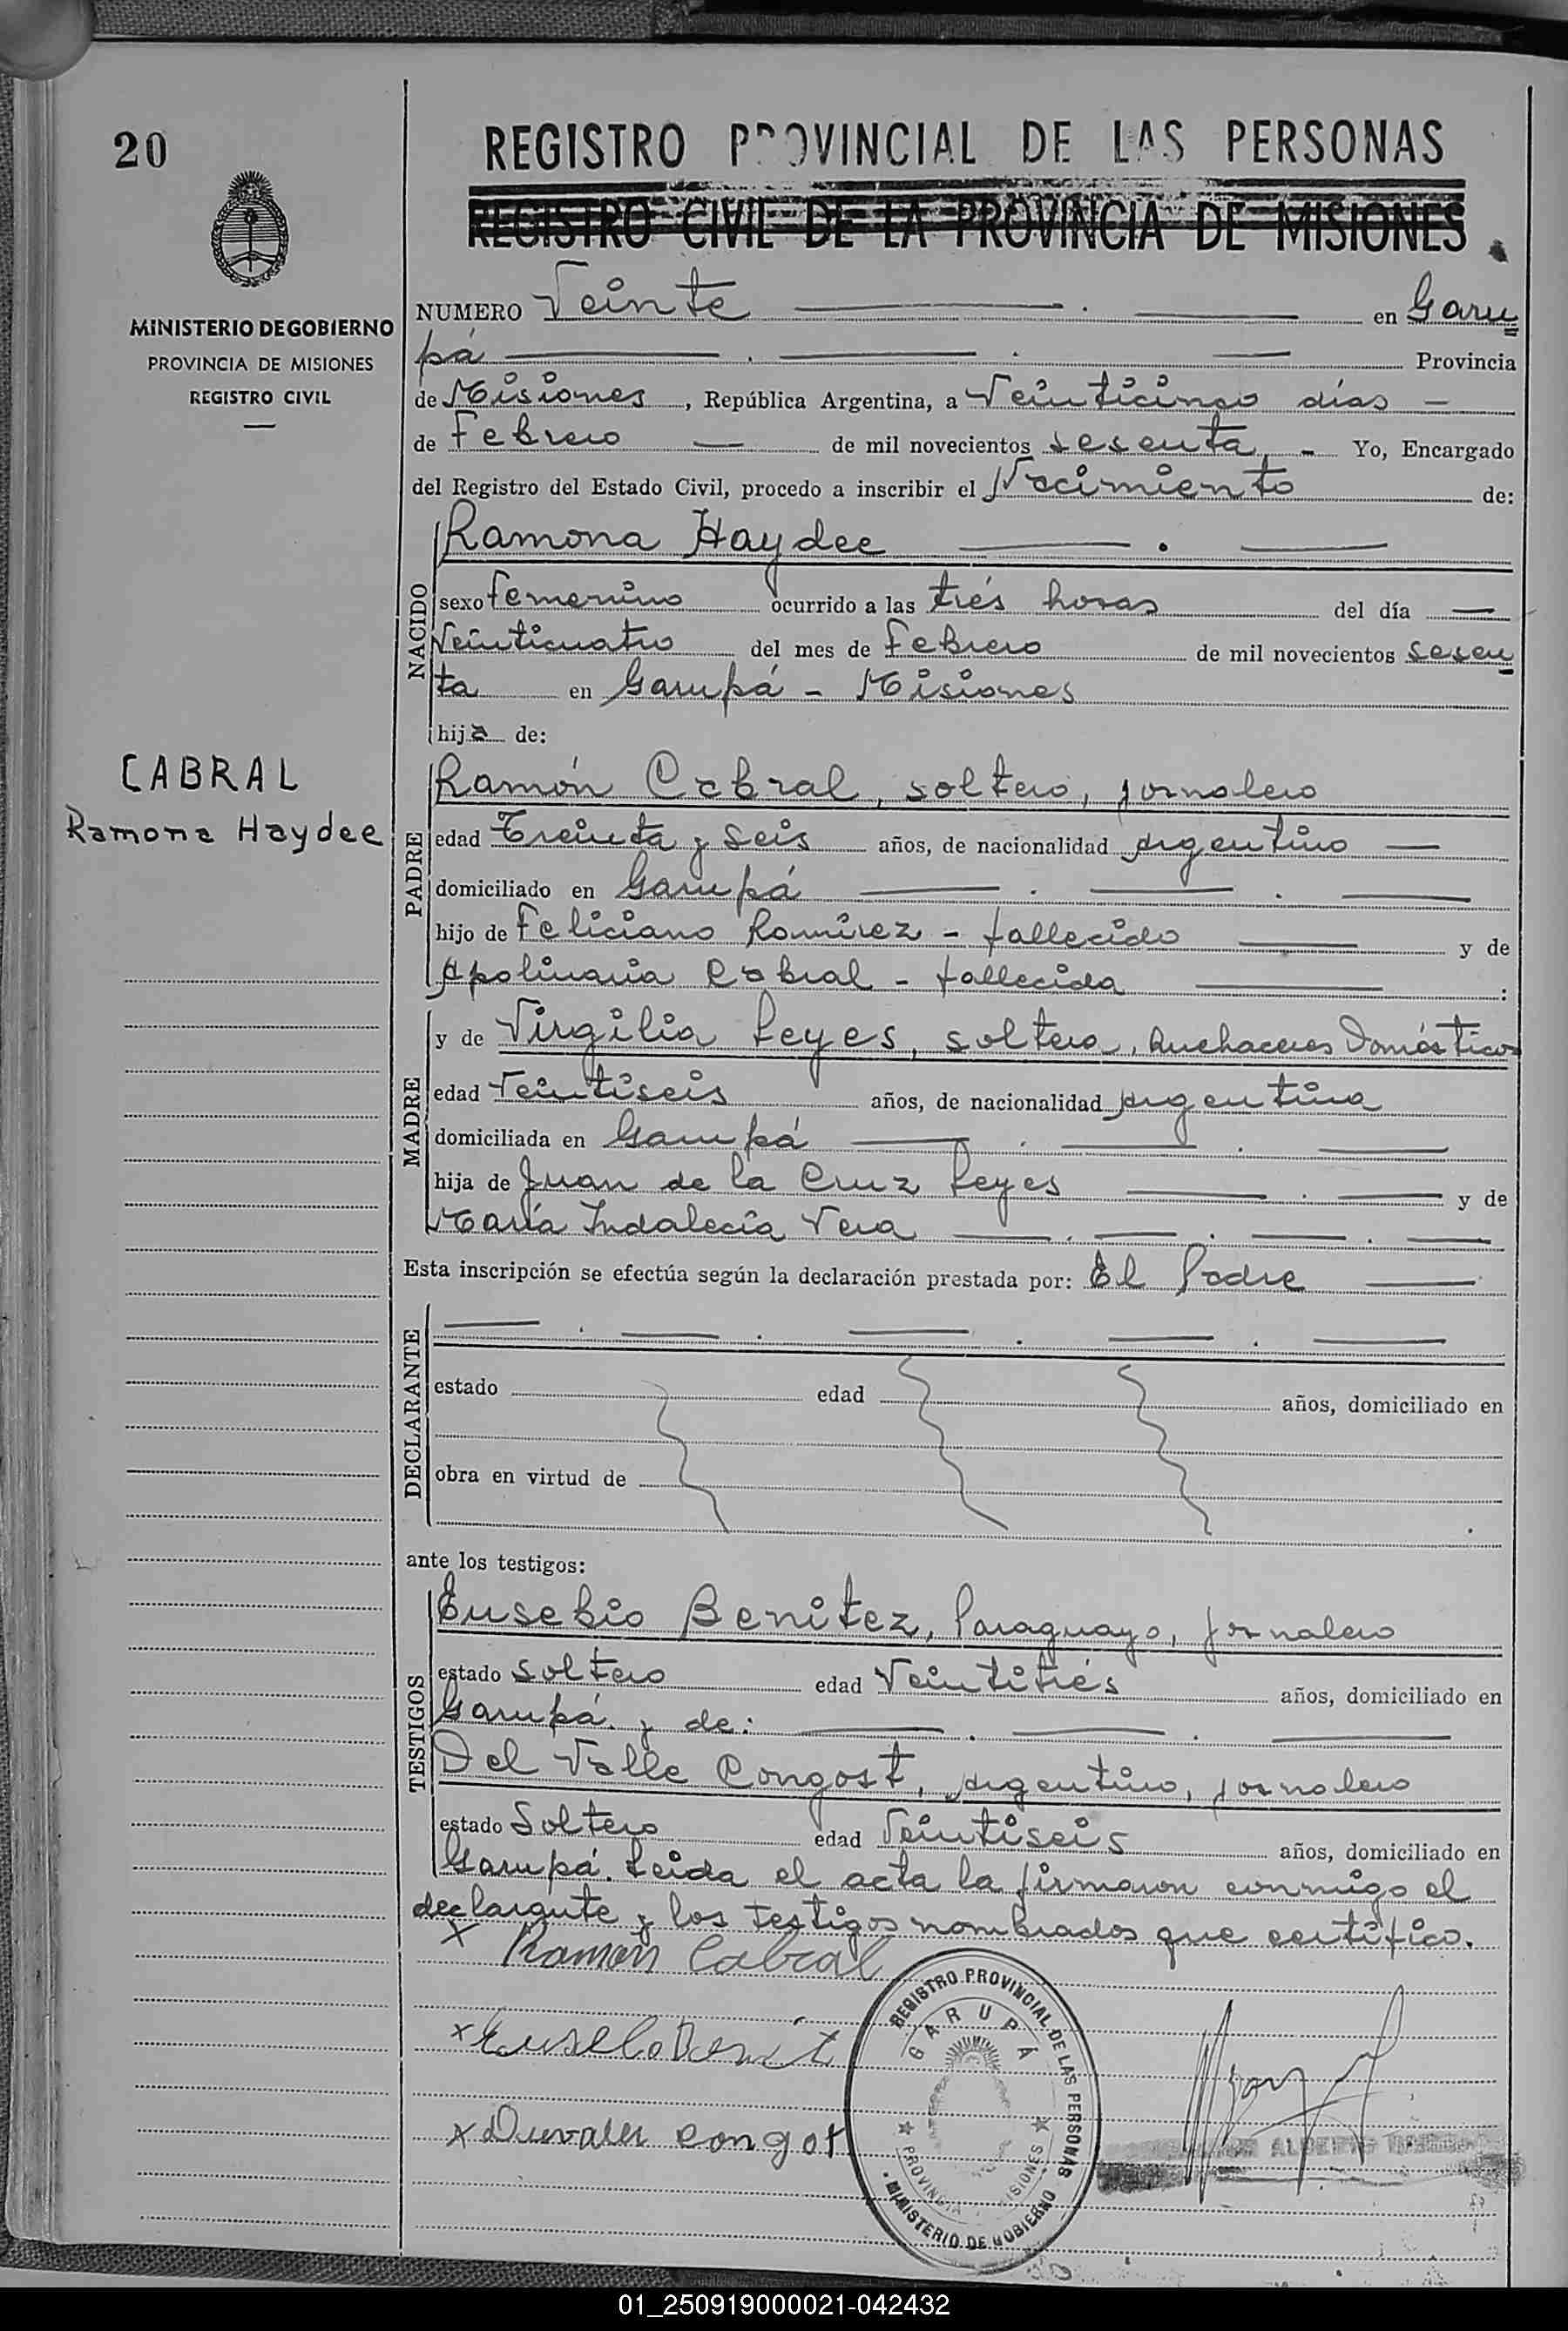 20
MINISTERIO DE GOBIERNO
PROVINCIA DE MISIONES
REGISTRO CIVIL
CABRAL
Ramona Haydee
REGISTRO PROVINCIAL DE LAS PERSONAS
REGISTRO CIVIL DE LA PROVINCIA DE MISIONES
NUMERO Veinte en Garu
pá Provincia
de Misiones, República Argentina, a Veinticinco días
de Febrero de mil novecientos sesenta Yo, Encargado
del Registro del Estado Civil, procedo a inscribir el Nacimiento de:
NACIDO
Ramona Haydee
sexo femenino ocurrido a las trés horas del día
Veinticuatro del mes de Febrero de mil novecientos sesen
ta en Garupá - Misiones
hija de:
PADRE
Ramón Cabral, soltero, jornalero
edad Treinta y seis años, de nacionalidad argentino
domiciliado en Garupá
hijo de Feliciano Ramirez - fallecido y de
Apolinaria Cabral - fallecida :
MADRE
y de Virgilia Reyes, soltera, Quehaceres Domésticos
edad Veintiseis años, de nacionalidad argentina
domiciliada en Garupá
hija de Juan de la Cruz Reyes y de
María Indalecia Vera
Esta inscripción se efectúa según la declaración prestada por: El Padre
DECLARANTE
estado edad años, domiciliado en
obra en virtud de
ante los testigos:
TESTIGOS
Eusebio Benitez, Paraguayo, jornalero
estado soltero edad Veintitrés años, domiciliado en
Garupá. y de:
Del Valle Congost, argentino, jornalero
estado Soltero edad Veintiseis años, domiciliado en
Garupá. Leida el acta la firmaron conmigo el
declarante y los testigos nombrados que certifico.
x Ramón Cabral
x
x congot
REGISTRO PROVINCIAL DE LAS PERSONAS
GARUPÁ
PROVINCIA MISIONES
MINISTERIO DE GOBIERNO
ALBERTO
01_250919000021-042432